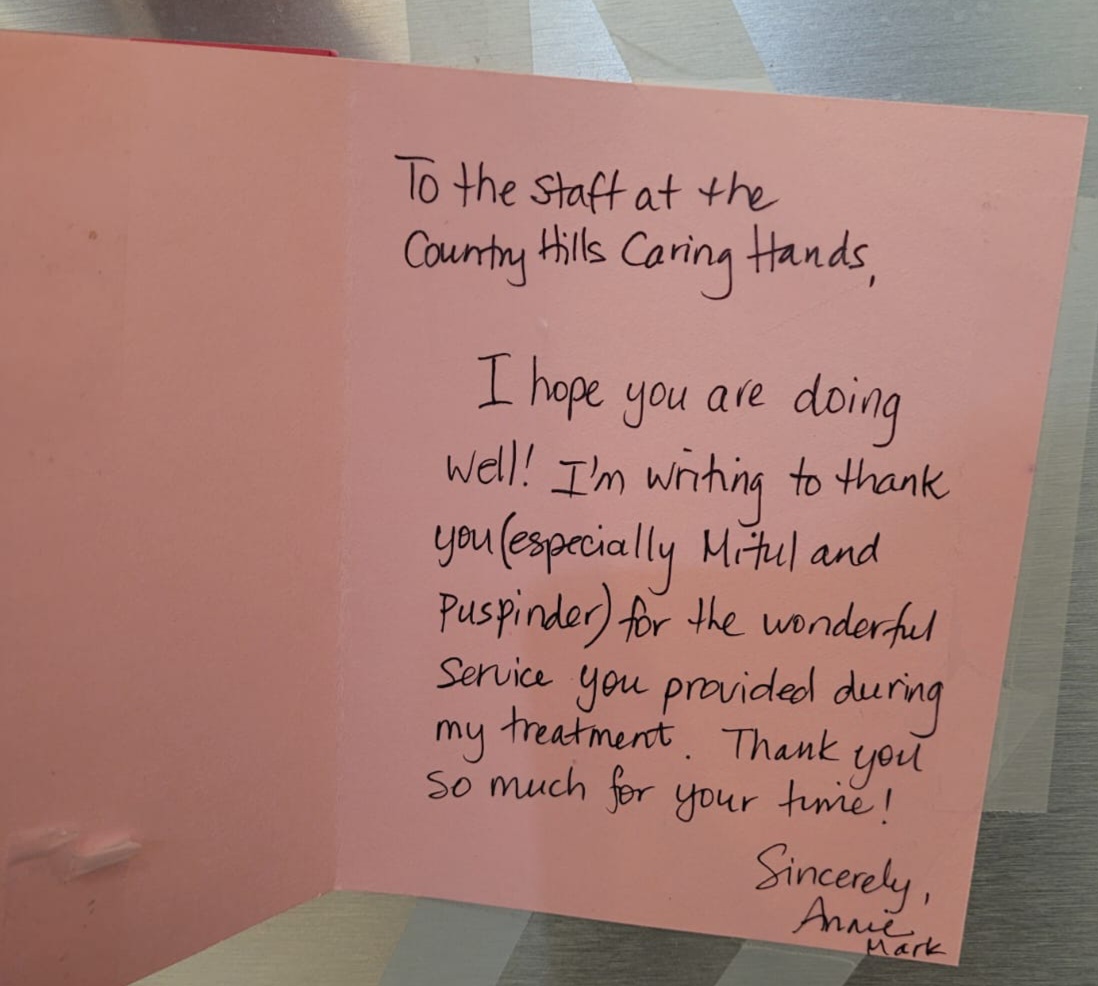 To the staff at the
Country Hills Caring Hands,
I hope you are doing
well! I'm writing to thank
you (especially Mitul and
Puspinder) for the wonderful
service you provided during
my treatment. Thank you
so much for your time!
Sincerely,
Annie
Mark